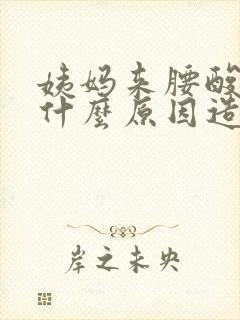 姨妈来腰酸
什麼原因造
岸之未央